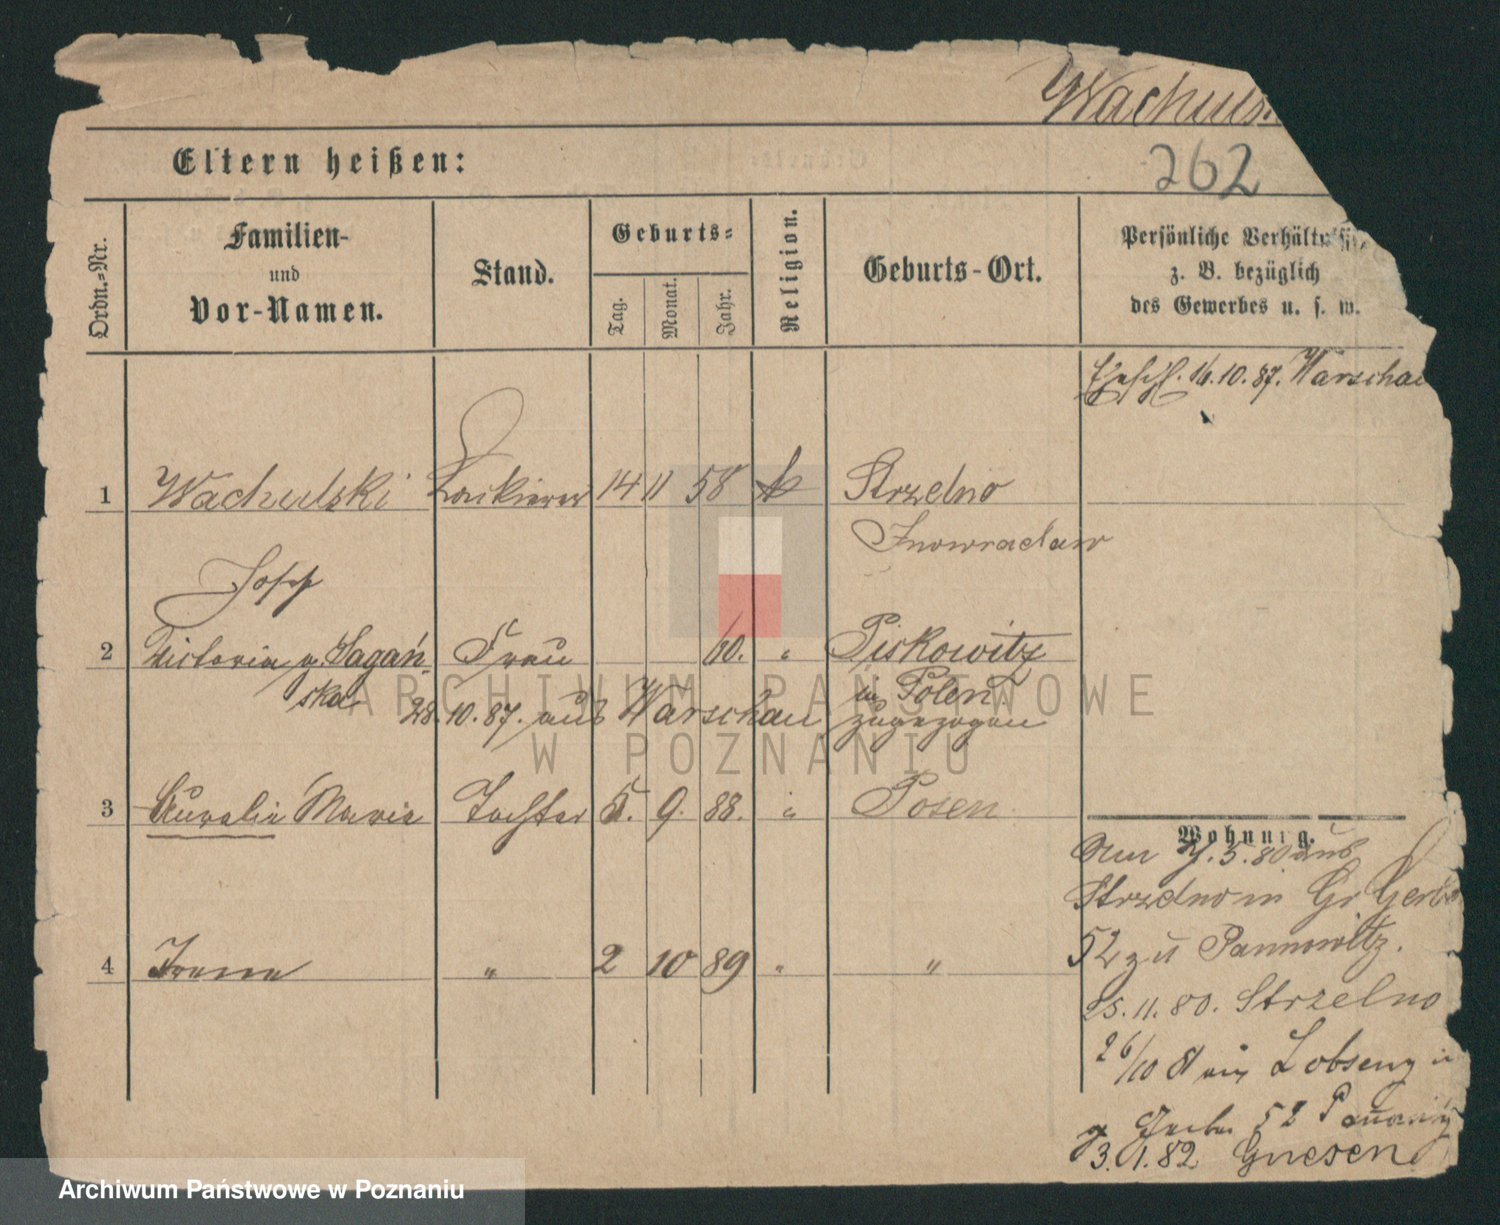 Wachuls
262
Eltern heißen:
Ordn.-Nr.
Familien-
und
Vor-Namen.
Stand.
Geburts-
Tag.
Monat.
Jahr.
Religion.
Geburts-Ort.
Persönliche Verhältnisse
z. B. bezüglich
des Gewerbes u. s. w.
Ehesch. 16.10.87. Warschau
1 Wachulski Lackierer 14 11 58 k Strzelno
Inowraclaw
Josef
2 Victoria g. Sagań- Frau 60. " Piskowitz
ska
in Polen
28.10.87. aus Warschau zugezogen
3 Aurelia Maria Tochter 5. 9. 88. " Posen
4 Irene " 2 10 89 " "
Wohnung.
5.80 aus
Strzelno in Gr Gerb
52 zu Pannwitz.
25.11.80. Strzelno
26/10 81 Lobsens
Gerber 52 Pannwitz
3.1.82 Gnesen
ARCHIWUM PAŃSTWOWE
W POZNANIU
Archiwum Państwowe w Poznaniu